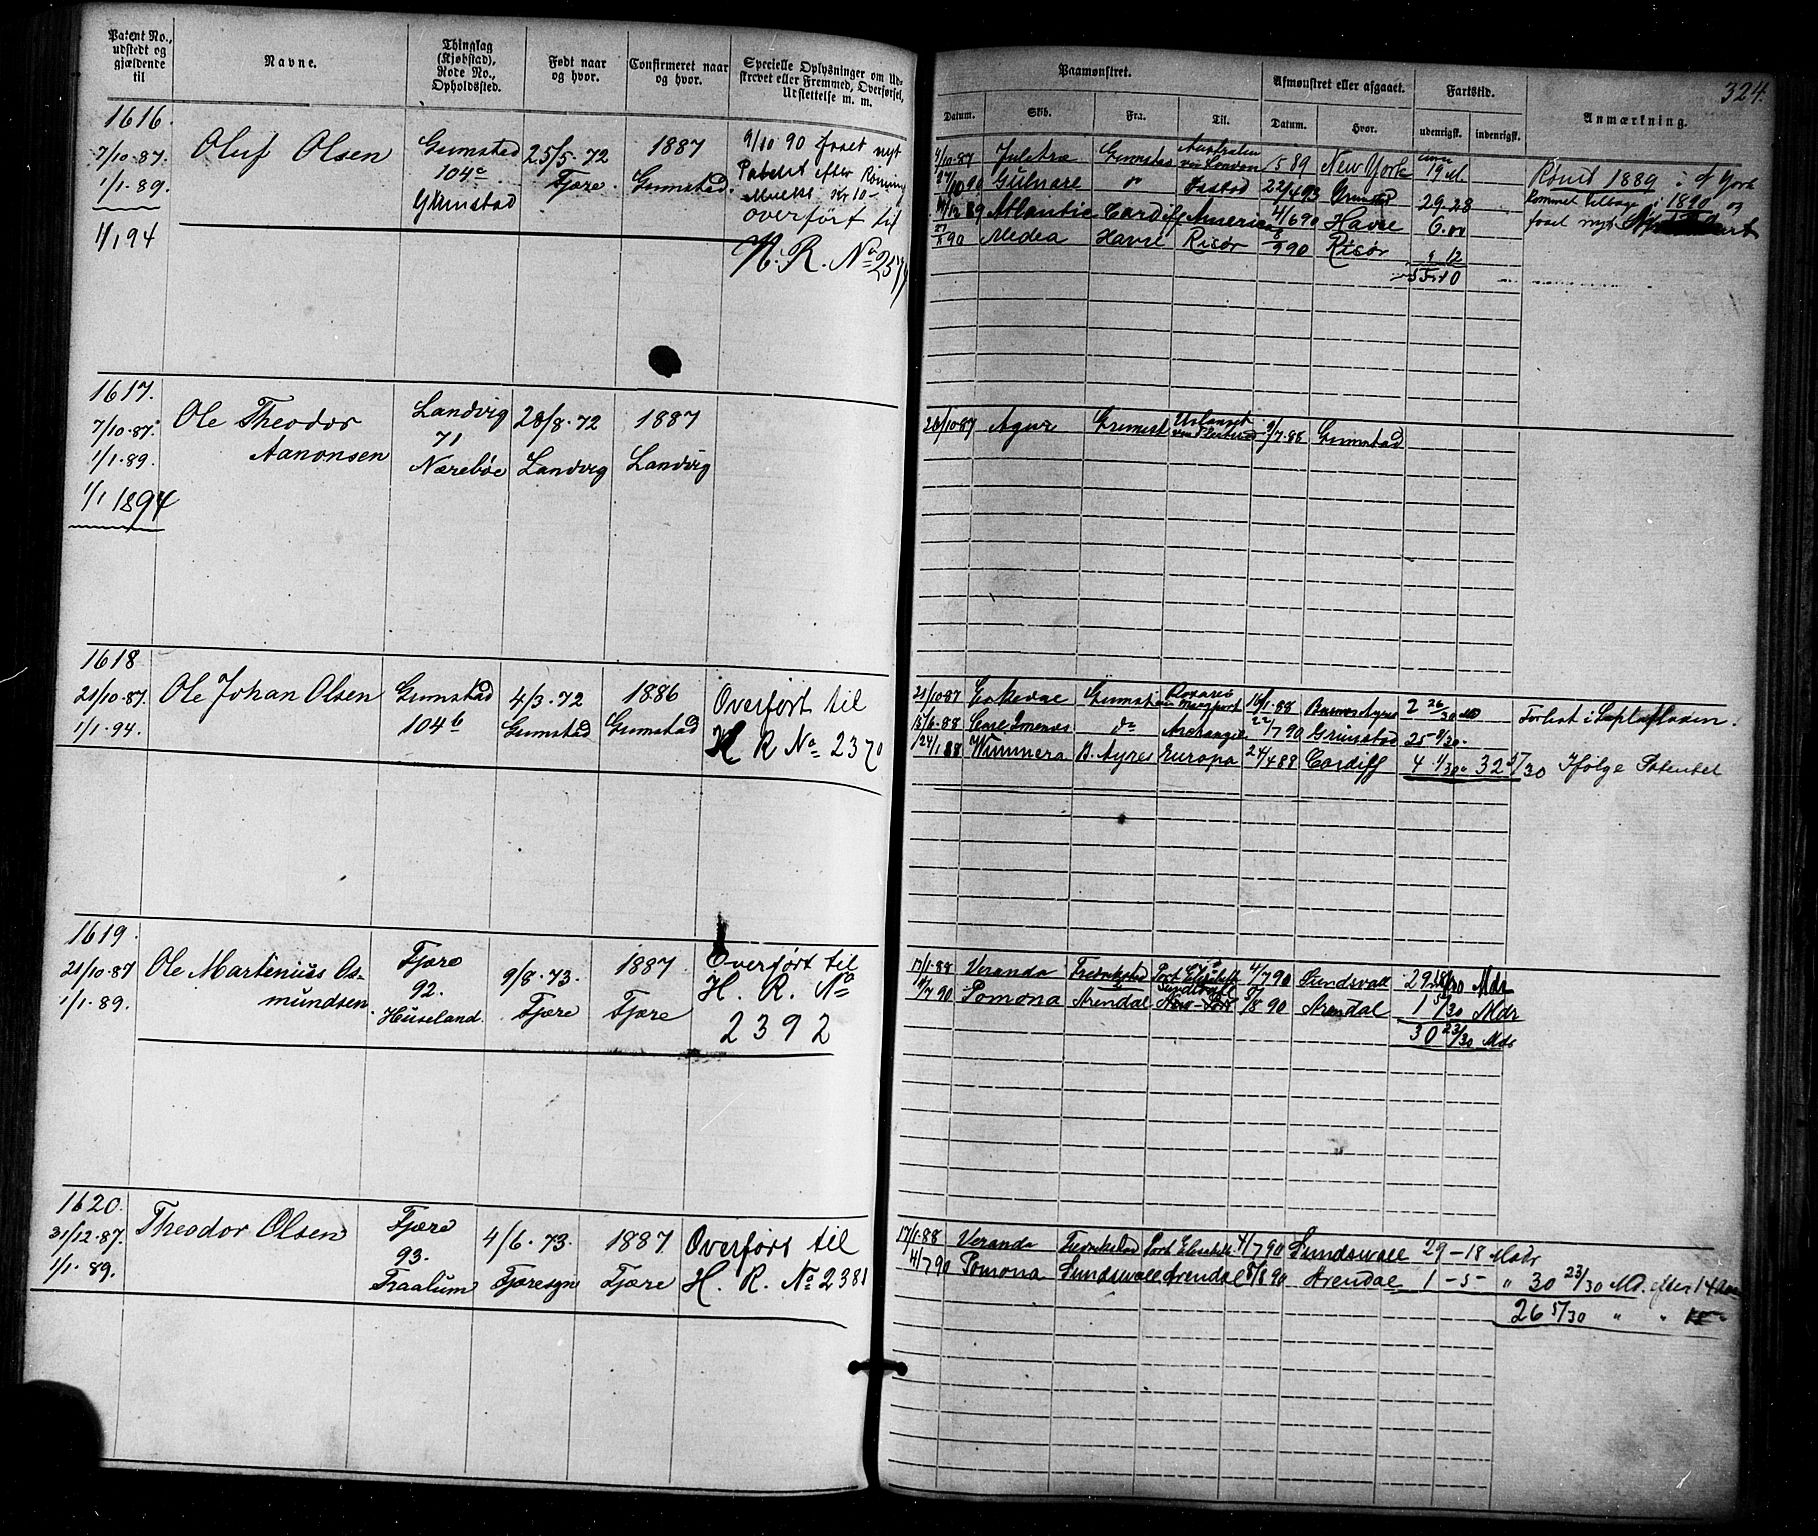 Patent No., udstedt og gjældende til
Navne.
Thinglag (Kjøbstad), Rode No., Opholdssted.
Født naar og hvor.
Confirmeret naar og hvor.
Specielle Oplysninger om Ud-
skrevet eller Fremmed, Overførsel,
Udslettelse m. m.
Paamønstret.
Afmønstret eller afgaaet.
Fartstid.
Anmærkning.
324.
Datum. Skib. Fra. Til. Datum. Hvor. udenrigsk. indenrigsk.
1616.
7/10.87. Oluf Olsen Grimstad 25/5.72 1887 9/10 90 faaet nyt
1/1.89. 104c Fjære. Grimstad. Patent efter Rømning
Grimstad overført til
1/1 94 H. R. No 257
4/10.87 Grimstad Australien via London 1/5 89 New York 19 M. Rømt 1889 i N York
27/10 90 Gulnare 22/4 93 Grimstad 29.28 kommet tilbage i 1890 og
89 Atlantic Cardiff America 4/6 90 Havre 6.00 faaet nyt
90 Medea Havre Risør 90 Risør 12
1617.
7/10.87. Ole Theodor Landvig 28/8.72 1887
1/1.89. Aanonsen 71
Nærebøe Landvig Landvig
1/1 1894
28/10 87 Agur Udlandet 9/7.88 Grimstad
1618
21/10.87. Ole Johan Olsen Grimstad 4/3.72 1886 Overført til
1/1.94. 104b Grimstad Grimstad H R No 2370
21/10 87 Grimstad Rosario via Newport 16/1.88 Buenos Ayres 2 26/30 M Forlist i Laplatfloden.
15/6.88 do Archangel 22/7 90 Grimstad 25 8/30.
24/1.88 Wimmera B. Ayres Europa 24/4 88 Cardiff 4 1/30 32 5/30 Ifølge Patentet
1619.
21/10.87 Ole Martenius Os- Fjære 9/8.73. 1887. Overført til
1/1.89. mundsen. 92. Fjære Fjære H. R. No
Huseland. 2392
17/1.88 Veranda Fredrikstad Port Elisabeth 4/7 90 Sundsvall 29 18/30 Mdr
4/7 90 Pomona Arendal Sundsvall 5/8 90 Arendal 1 5/30 Mdr
30 23/30 Mdr
1620.
31/12.87. Theodor Olsen Fjære 4/6.73. 1887 Overført til
1/1.89. 93. Fjæresgn Fjære H. R. No 2381
Fraalum
17/1.88 Veranda Fredrikstad Port Elisabeth 4/7 90 Sundswall 29-18 Mdr
4/7 90 Pomona Sundswall Arendal 5/8 90 Arendal 1-5- " 30 23/30 Md. efter 14 Aar
26 5/30 " " 15